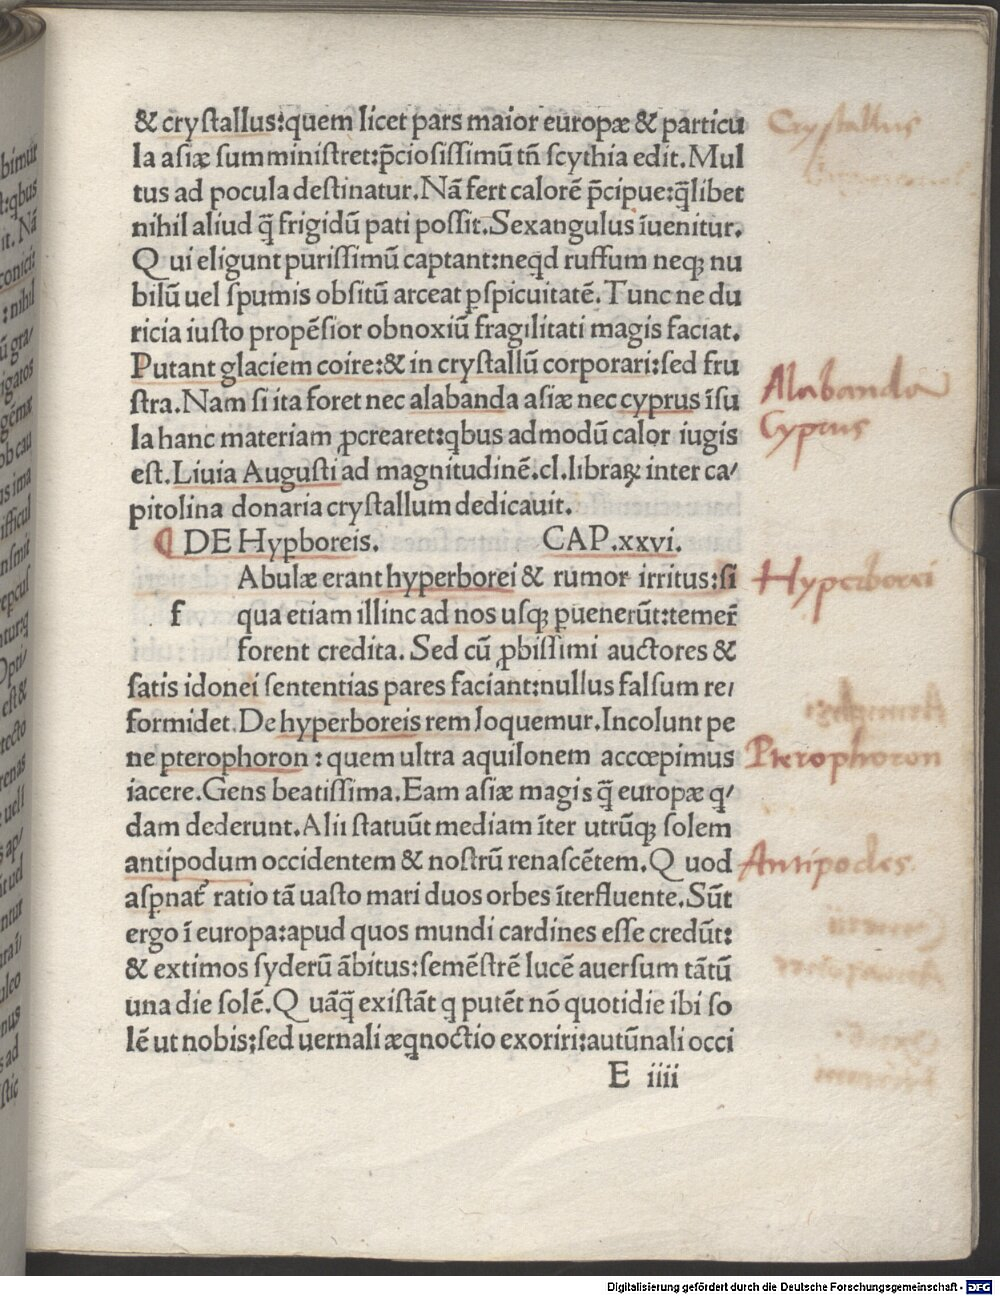 & crystallus:quem licet pars maior europæ & particu
la asiæ sumministret:p̄ciosissimū tn̄ scythia edit.Mul
tus ad pocula destinatur.Nā fert calorē p̄cipue:q̄libet
nihil aliud q̄ frigidū pati possit.Sexangulus īuenitur.
Qui eligunt purissimū captant:neqd ruffum neqꝫ nu
bilū uel spumis obsitū arceat ꝑspicuitatē.Tunc ne du
ricia iusto propēsior obnoxiū fragilitati magis faciat.
Putant glaciem coire:& in crystallū corporari:sed fru
stra.Nam si ita foret nec alabanda asiæ nec cyprus īsu
la hanc materiam ꝓcrearet:qbus admodū calor iugis
est.Liuia Augusti ad magnitudinē.cl.libraꝝ inter ca/
pitolina donaria crystallum dedicauit.
¶ DE Hypboreis. CAP.xxvi.
Abulæ erant hyperborei & rumor irritus:si
f qua etiam illinc ad nos usqꝫ puenerūt:temer̄
forent credita. Sed cū ꝓbissimi auctores &
satis idonei sententias pares faciant:nullus falsum re/
formidet.De hyperboreis rem loquemur.Incolunt pe
ne pterophoron:quem ultra aquilonem accœpimus
iacere.Gens beatissima.Eam asiæ magis q̄ europæ q/
dam dederunt.Alii statuūt mediam īter utrūqꝫ solem
antipodum occidentem & nostrū renascētem.Quod
aspnat᷑ ratio tā uasto mari duos orbes īterfluente.Sūt
ergo ī europa:apud quos mundi cardines esse credūt:
& extimos syderū ābitus:semēstrē lucē auersum tātū
una die solē.Quāq̄ existāt q putēt nō quotidie ibi so
lē ut nobis:sed uernali æqnoctio exoriri:autūnali occi
E iiii
Crystallus
Alabanda
Cyprus
Hyperborei
Pterophoron
Antipodes.
Digitalisierung gefördert durch die Deutsche Forschungsgemeinschaft - DFG